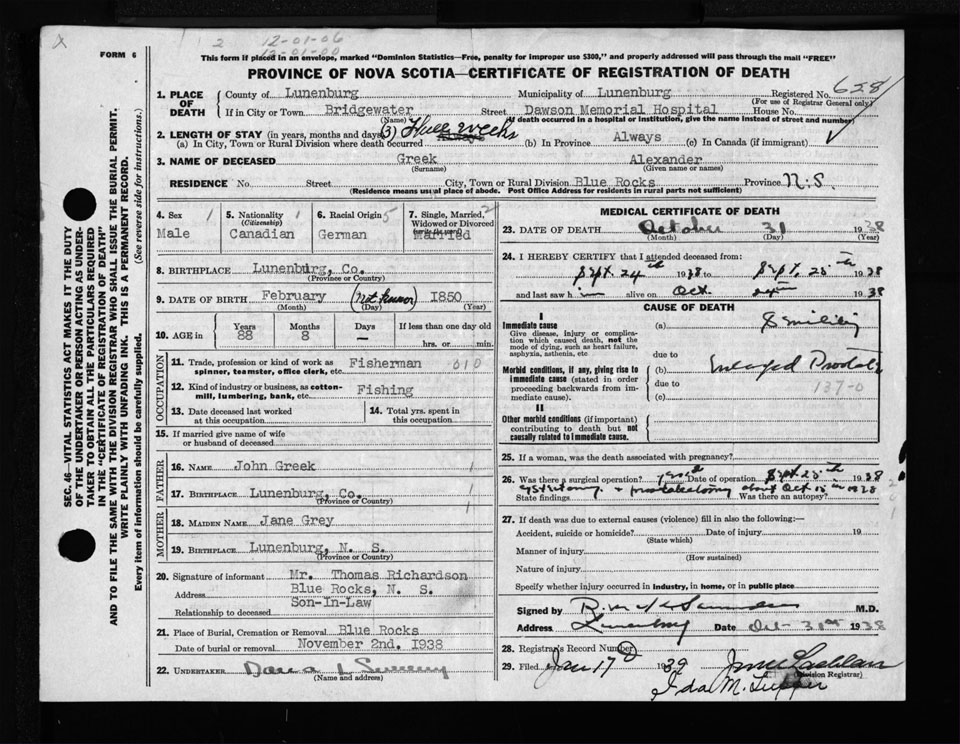 X
2 12-01-06
12-01-00
FORM 6
This form if placed in an envelope, marked "Dominion Statistics—Free, penalty for improper use $300," and properly addressed will pass through the mail "FREE"
PROVINCE OF NOVA SCOTIA—CERTIFICATE OF REGISTRATION OF DEATH
SEC. 46—VITAL STATISTICS ACT MAKES IT THE DUTY
OF THE UNDERTAKER OR PERSON ACTING AS UNDER-
TAKER TO OBTAIN ALL THE PARTICULARS REQUIRED
IN THE "CERTIFICATE OF REGISTRATION OF DEATH"
AND TO FILE THE SAME WITH THE DIVISION REGISTRAR WHO SHALL ISSUE THE BURIAL PERMIT.
WRITE PLAINLY WITH UNFADING INK. THIS IS A PERMANENT RECORD.
Every item of information should be carefully supplied. (See reverse side for instructions.)
1. PLACE OF DEATH
County of Lunenburg Municipality of Lunenburg Registered No. 628
(For use of Registrar General only)
If in City or Town Bridgewater Street Dawson Memorial Hospital House No.
(Name) (If death occurred in a hospital or institution, give the name instead of street and number)
2. LENGTH OF STAY (in years, months and days) (3) Three weeks
(a) In City, Town or Rural Division where death occurred Always (b) In Province Always (c) In Canada (if immigrant)
3. NAME OF DECEASED Greek Alexander
(Surname) (Given name or names)
RESIDENCE No. Street City, Town or Rural Division Blue Rocks Province N.S.
(Residence means usual place of abode. Post Office Address for residents in rural parts not sufficient)
4. Sex 1
Male
5. Nationality 1
(Citizenship)
Canadian
6. Racial Origin 5
German
7. Single, Married, 2
Widowed or Divorced
Married
8. BIRTHPLACE Lunenburg, Co.
(Province or Country)
9. DATE OF BIRTH February (Not known) 1850
(Month) (Day) (Year)
10. AGE in Years Months Days If less than one day old
88 8 — hrs. or min.
OCCUPATION
11. Trade, profession or kind of work as Fisherman 010
spinner, teamster, office clerk, etc.
12. Kind of industry or business, as cotton- Fishing
mill, lumbering, bank, etc.
13. Date deceased last worked
at this occupation
14. Total yrs. spent in
this occupation
15. If married give name of wife
or husband of deceased
FATHER
16. NAME John Greek 1
17. BIRTHPLACE Lunenburg, Co. 1
(Province or Country)
MOTHER
18. MAIDEN NAME Jane Grey 1
19. BIRTHPLACE Lunenburg, N. S.
(Province or Country)
20. Signature of informant Mr. Thomas Richardson
Address Blue Rocks, N. S.
Relationship to deceased Son-In-Law
21. Place of Burial, Cremation or Removal Blue Rocks
Date of burial or removal November 2nd. 1938
22. UNDERTAKER
(Name and address)
MEDICAL CERTIFICATE OF DEATH
23. DATE OF DEATH October 31 1938
(Month) (Day) (Year)
24. I HEREBY CERTIFY that I attended deceased from:
Sept. 24th 1938 to Sept. 25th 1938
and last saw him alive on Oct. 1938
CAUSE OF DEATH
I
Immediate cause
Give disease, injury or complica-
tion which caused death, not the
mode of dying, such as heart failure,
asphyxia, asthenia, etc
(a) Senility
due to
Morbid conditions, if any, giving rise to
immediate cause (stated in order
proceeding backwards from im-
mediate cause).
(b) Enlarged Prostate
due to 137-0
(c)
II
Other morbid conditions (if important)
contributing to death but not
causally related to immediate cause.
25. If a woman, was the death associated with pregnancy?
26. Was there a surgical operation? Date of operation Sept. 25th 1938
State findings Cystotomy + prostatectomy about Oct 1938 Was there an autopsy?
27. If death was due to external causes (violence) fill in also the following:—
Accident, suicide or homicide? Date of injury 19
(State which)
Manner of injury
(How sustained)
Nature of injury
Specify whether injury occurred in industry, in home, or in public place
Signed by M.D.
Address Lunenburg Date Oct 31st 1938
28. Registrar's Record Number
29. Filed Jan 17 1939
(Division Registrar)
Ida M. Tupper